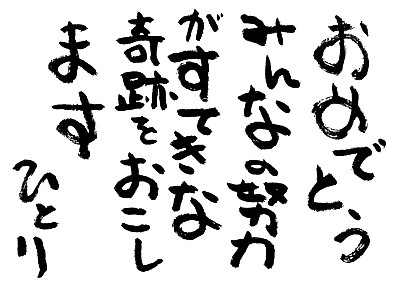 おめでとう
みんなの努力
がすてきな
奇跡をおこし
ます
ひとり